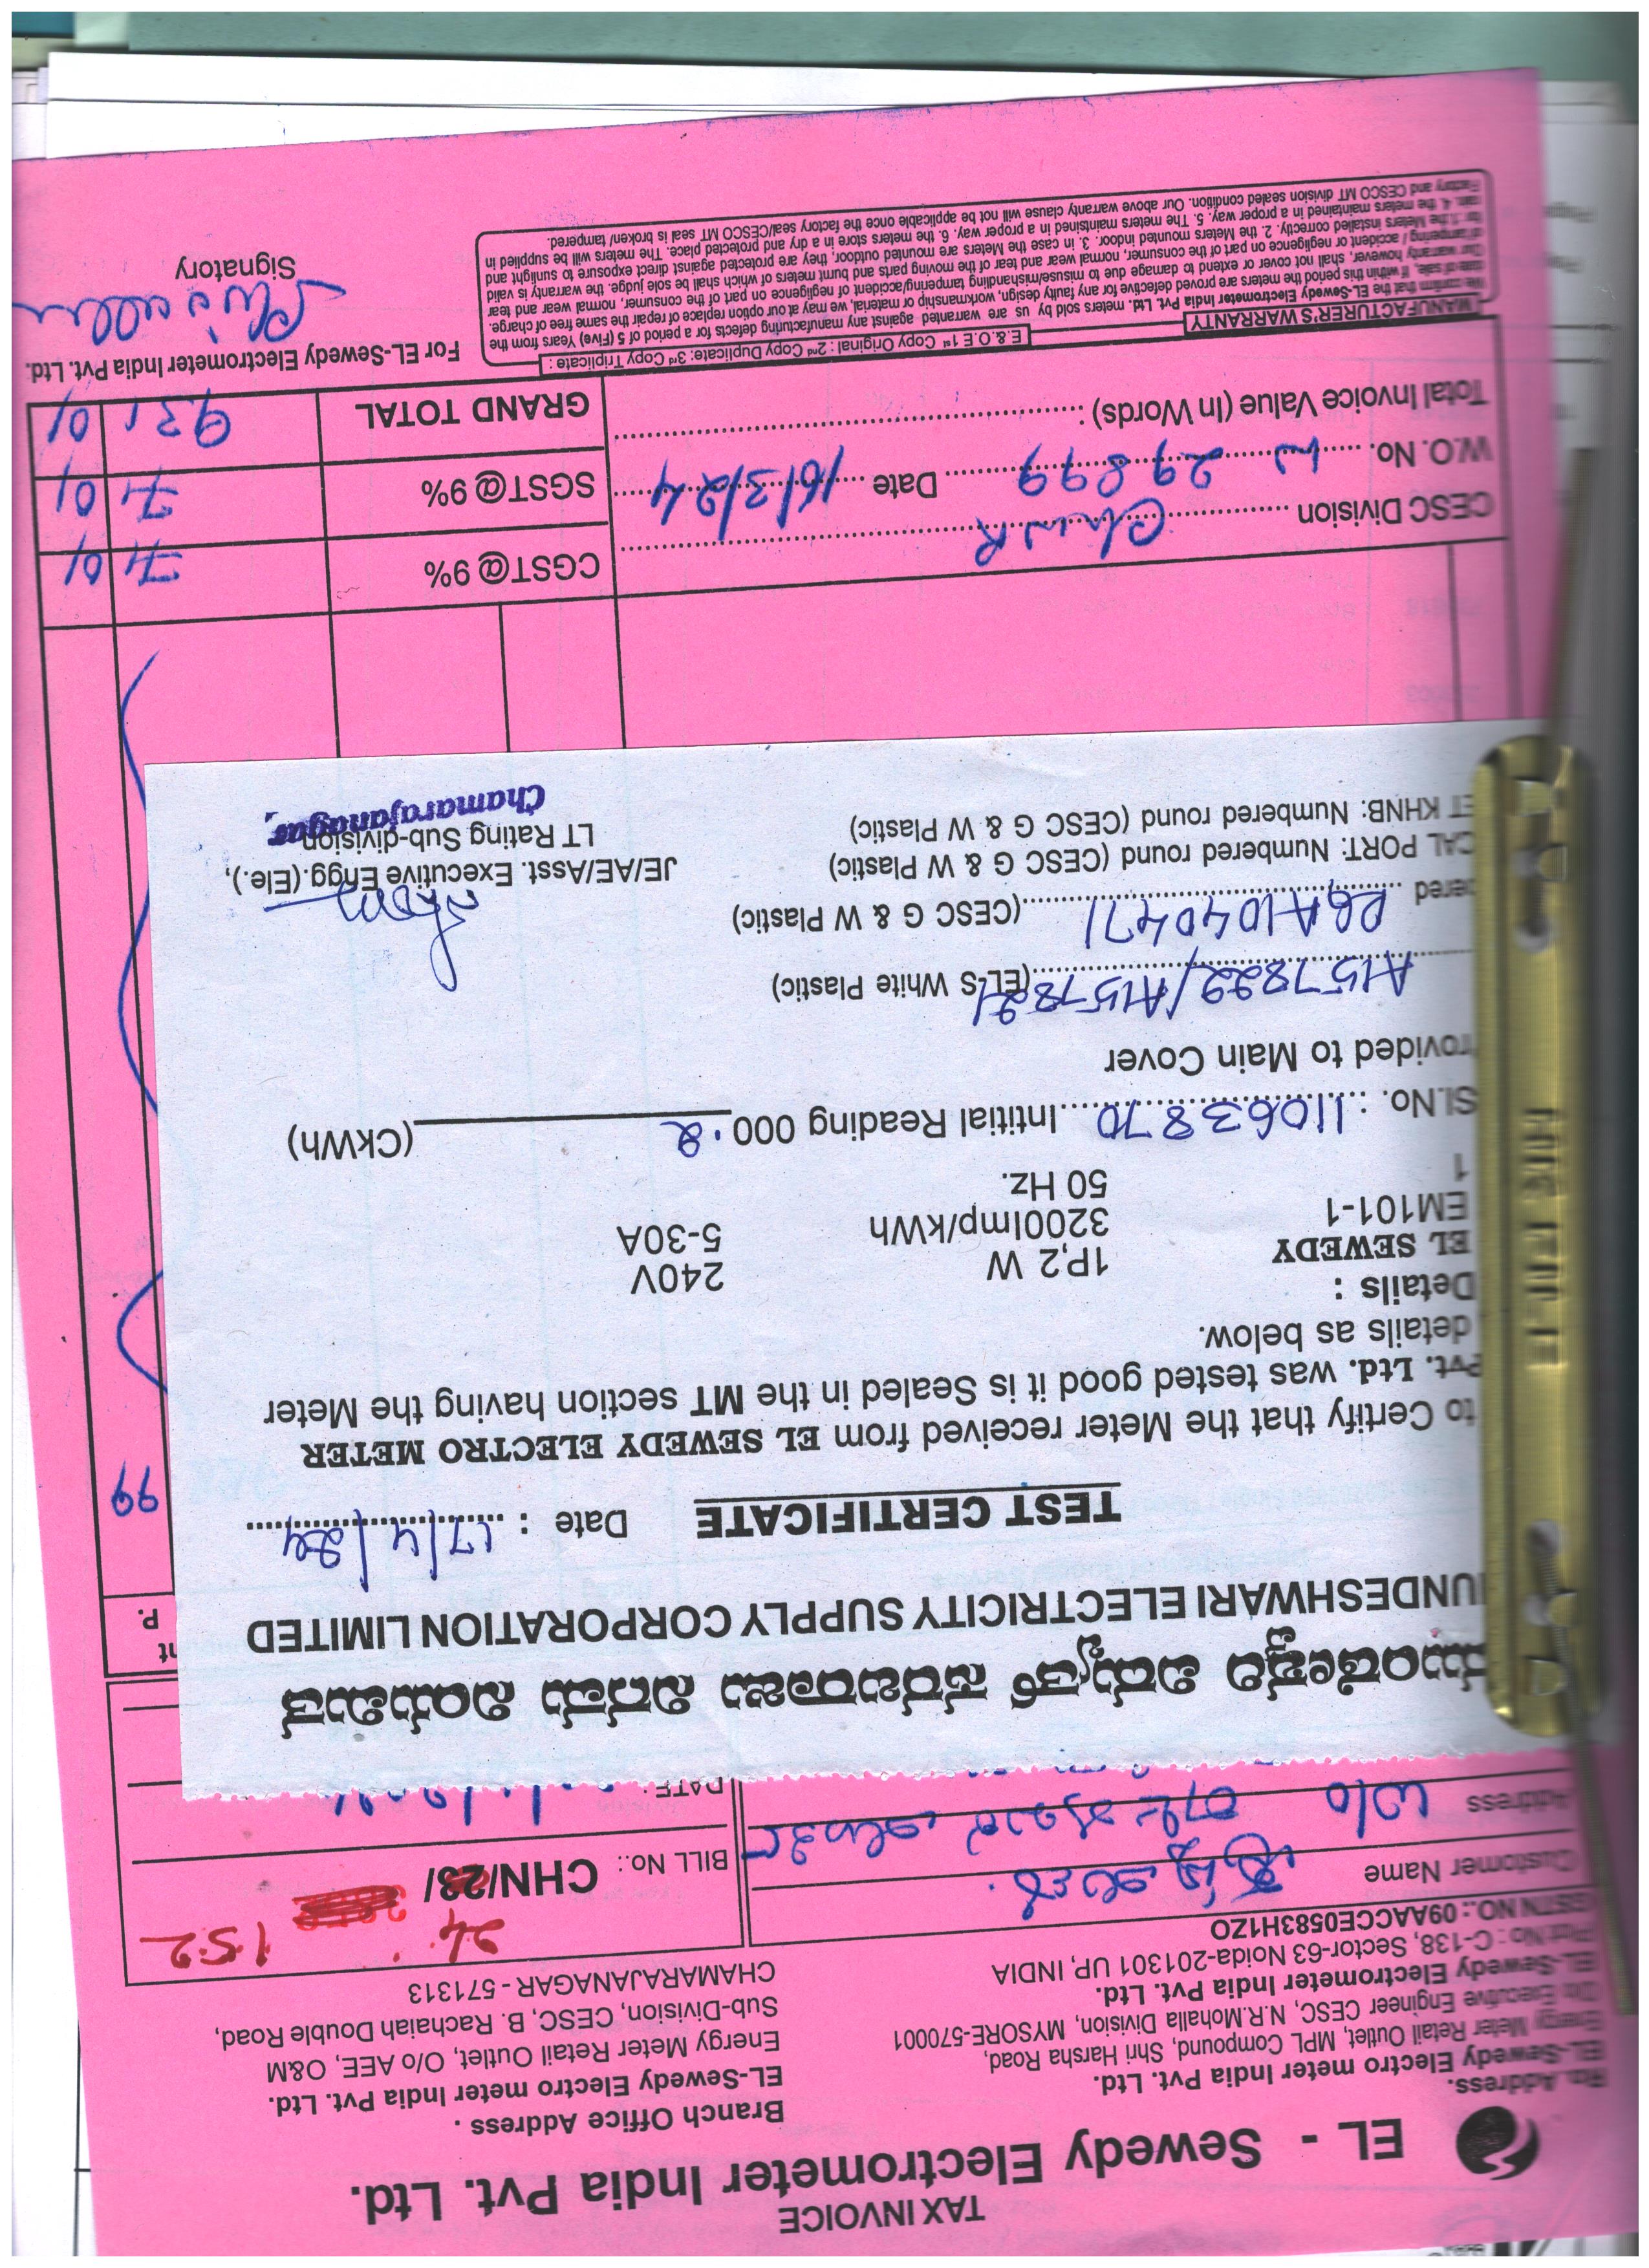 TAX INVOICE
EL - Sewedy Electrometer India Pvt. Ltd.
Address.
EL-Sewedy Electro meter India Pvt. Ltd.
Energy Meter Retail Outlet, MPL Compound, Shri Harsha Road,
Executive Engineer CESC, N.R.Mohalla Division, MYSORE-570001
EL-Sewedy Electrometer India Pvt. Ltd.
Plot No: C-138, Sector-63 Noida-201301 UP, INDIA
GSTN NO.: 09AACCE0583H1ZO
Branch Office Address .
EL-Sewedy Electro meter India Pvt. Ltd.
Energy Meter Retail Outlet, O/o AEE, O&M
Sub-Division, CESC, B. Rachaiah Double Road,
CHAMARAJANAGAR - 571313
Customer Name
Address W/o
BILL No.: CHN/23/ 24 152
DATE :
ಮುಂಡೇಶ್ವರಿ ವಿದ್ಯುತ್ ಸರಬರಾಜು ನಿಗಮ ನಿಯಮಿತ
UNDESHWARI ELECTRICITY SUPPLY CORPORATION LIMITED
TEST CERTIFICATE Date : 17/4/24
to Certify that the Meter received from EL SEWEDY ELECTRO METER
Pvt. Ltd. was tested good it is Sealed in the MT section having the Meter
details as below.
Details :
EL SEWEDY 1P,2 W 240V
EM101-1 3200Imp/kWh 5-30A
1 50 Hz.
Sl.No. : 11063870 Intitial Reading 000.2 (CkWh)
rovided to Main Cover
A1157822/A1157821 (EL-S White Plastic)
bered RGA1040471 (CESC G & W Plastic)
CAL PORT: Numbered round (CESC G & W Plastic)
ET KHNB: Numbered round (CESC G & W Plastic)
JE/AE/Asst. Executive Engg.(Ele.),
LT Rating Sub-division
Chamarajanagar
nt
P.
99
CESC Division
W.O. No. W 29899 Date 16/3/24
Total Invoice Value (In Words) :
CGST@ 9% 71 01
SGST@ 9% 71 01
GRAND TOTAL 931 01
E.&.O.E 1st Copy Original : 2nd Copy Duplicate: 3rd Copy Triplicate :
MANUFACTURER'S WARRANTY
We confirm that the EL-Sewedy Electrometer India Pvt. Ltd. meters sold by us are warranted against any manufacturing defects for a period of 5 (Five) Years from the
date of sale, If within this period the meters are proved defective for any faulty design, workmanship or material, we may at our option replace of repair the same free of charge.
Our warranty however, shall not cover or extend to damage due to misuse/mishandling tampering/accident of negligence on part of the consumer, normal wear and tear
of tampering / accident or negligence on part of the consumer, normal wear and tear of the moving parts and burnt meters of which shall be sole judge. the warranty is valid
for: 1.the Meters installed correctly. 2. the Meters mounted indoor. 3. in case the Meters are mounted outdoor, they are protected against direct exposure to sunlight and
rain. 4. the meters maintained in a proper way. 5. The meters maintsined in a proper way. 6. the meters store in a dry and protected place. The meters will be supplied in
Factory and CESCO MT division sealed condition. Our above warranty clause will not be applicable once the factory seal/CESCO MT seal is broken/ tampered.
For EL-Sewedy Electrometer India Pvt. Ltd.
Signatory